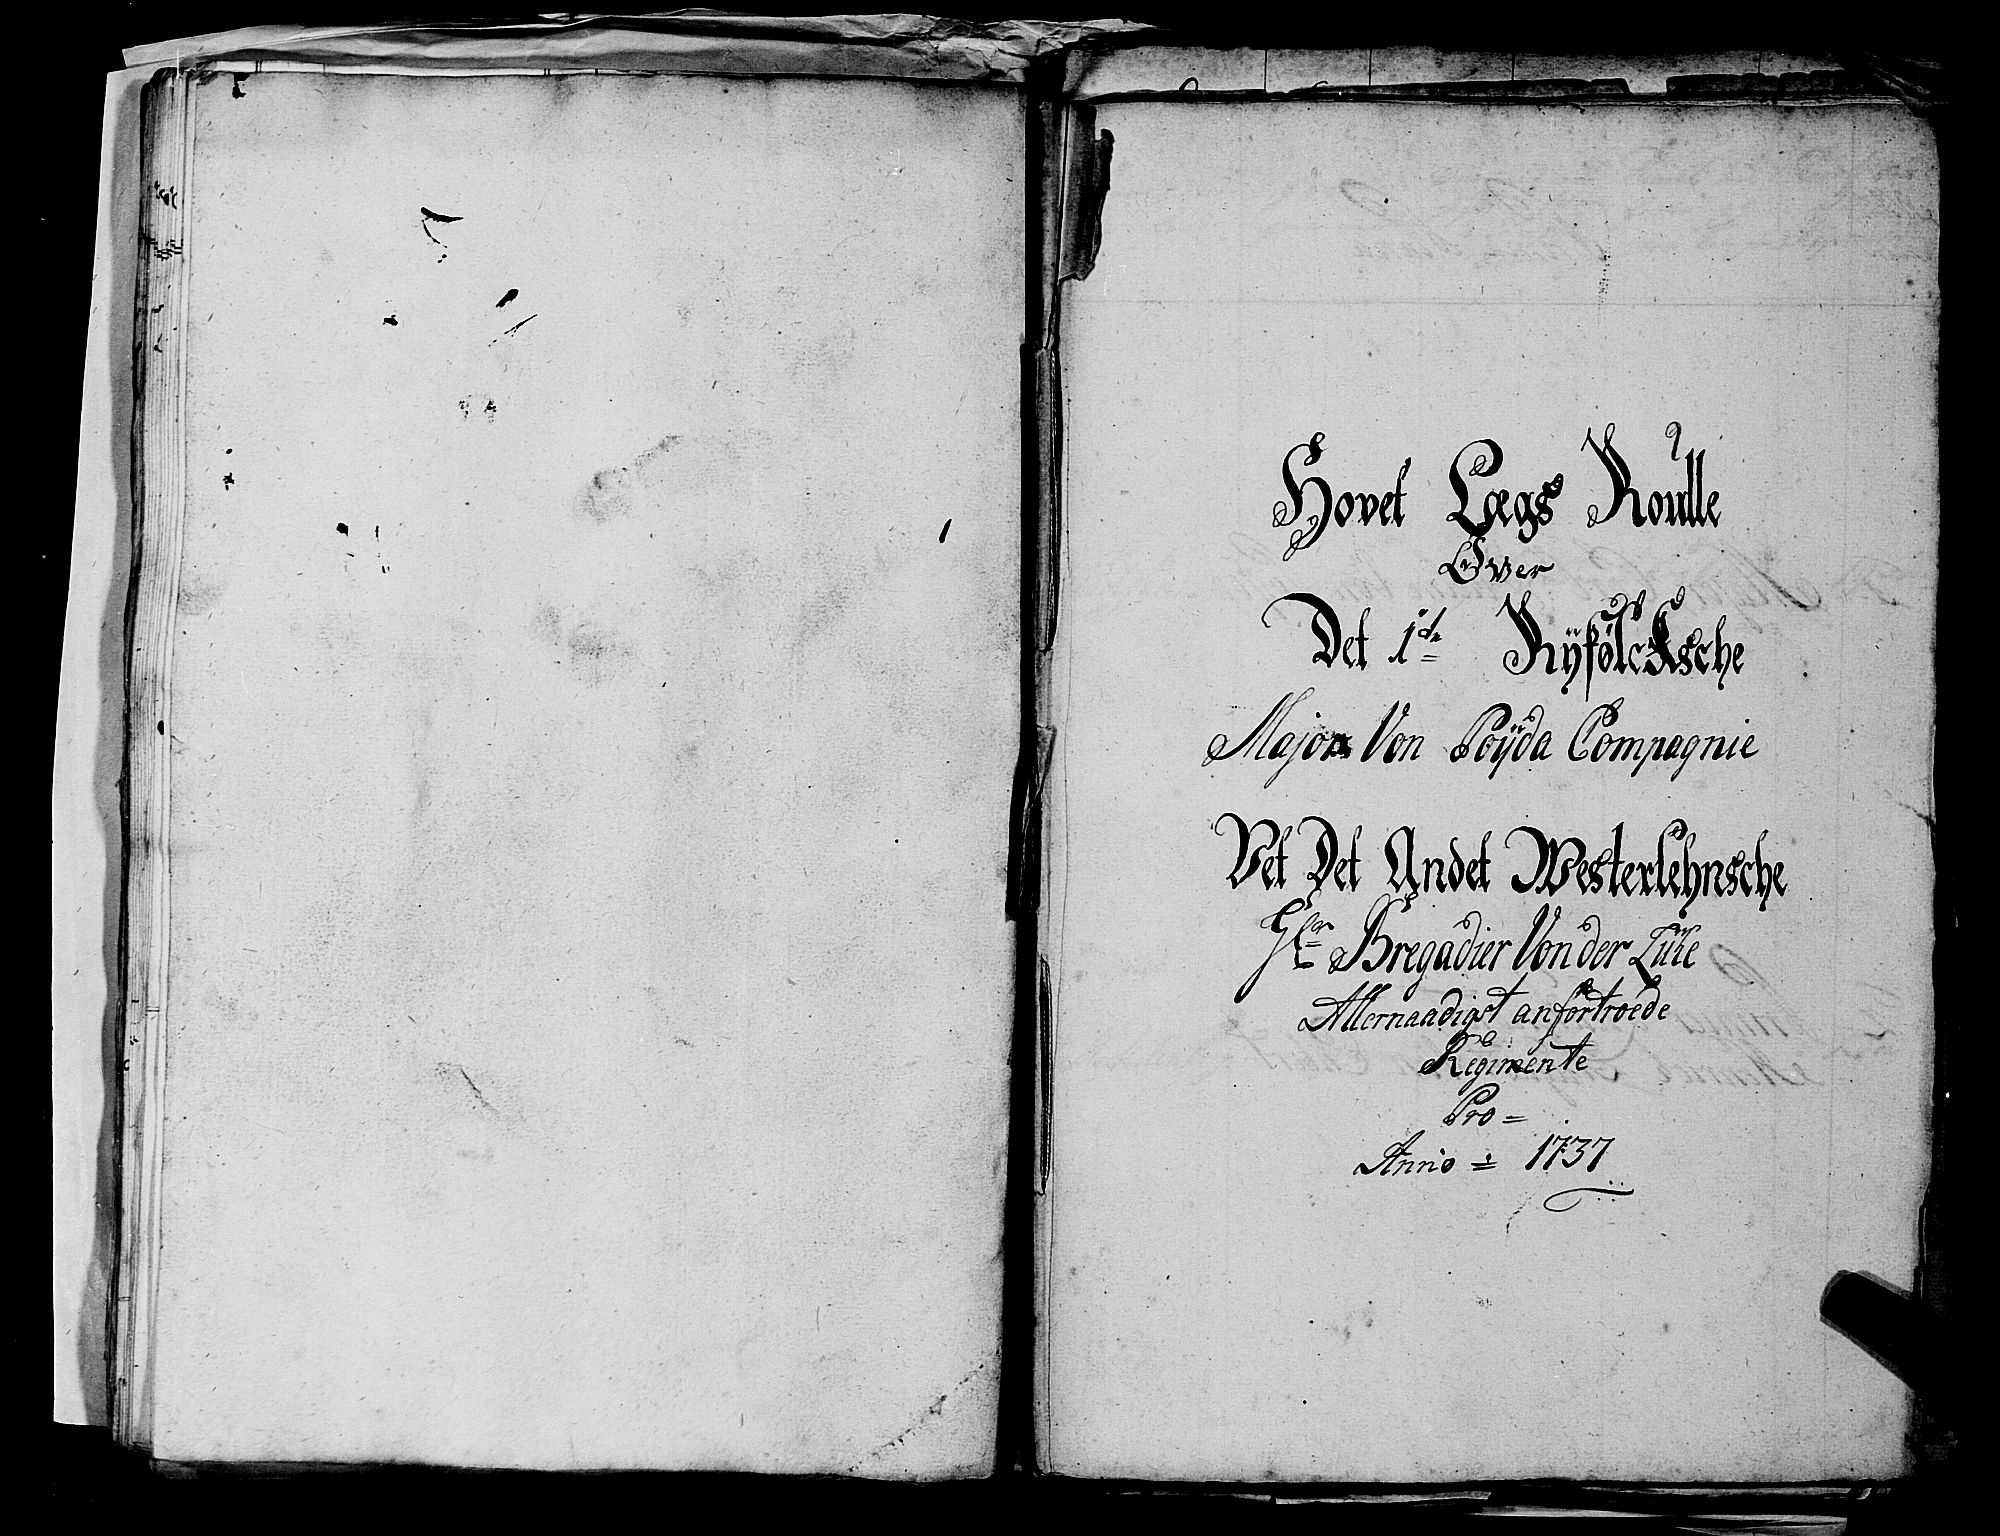 Hovet Lægs Roulle
Over
Det 1ste Ryfølcksche
Major Von Poÿda Compagnie
Vet Det Andet Westerlehnsche
Hr Bregadier Von der Lühe
Allernaadigst anfortroede
Regimente
Pro =
Anno = 1737